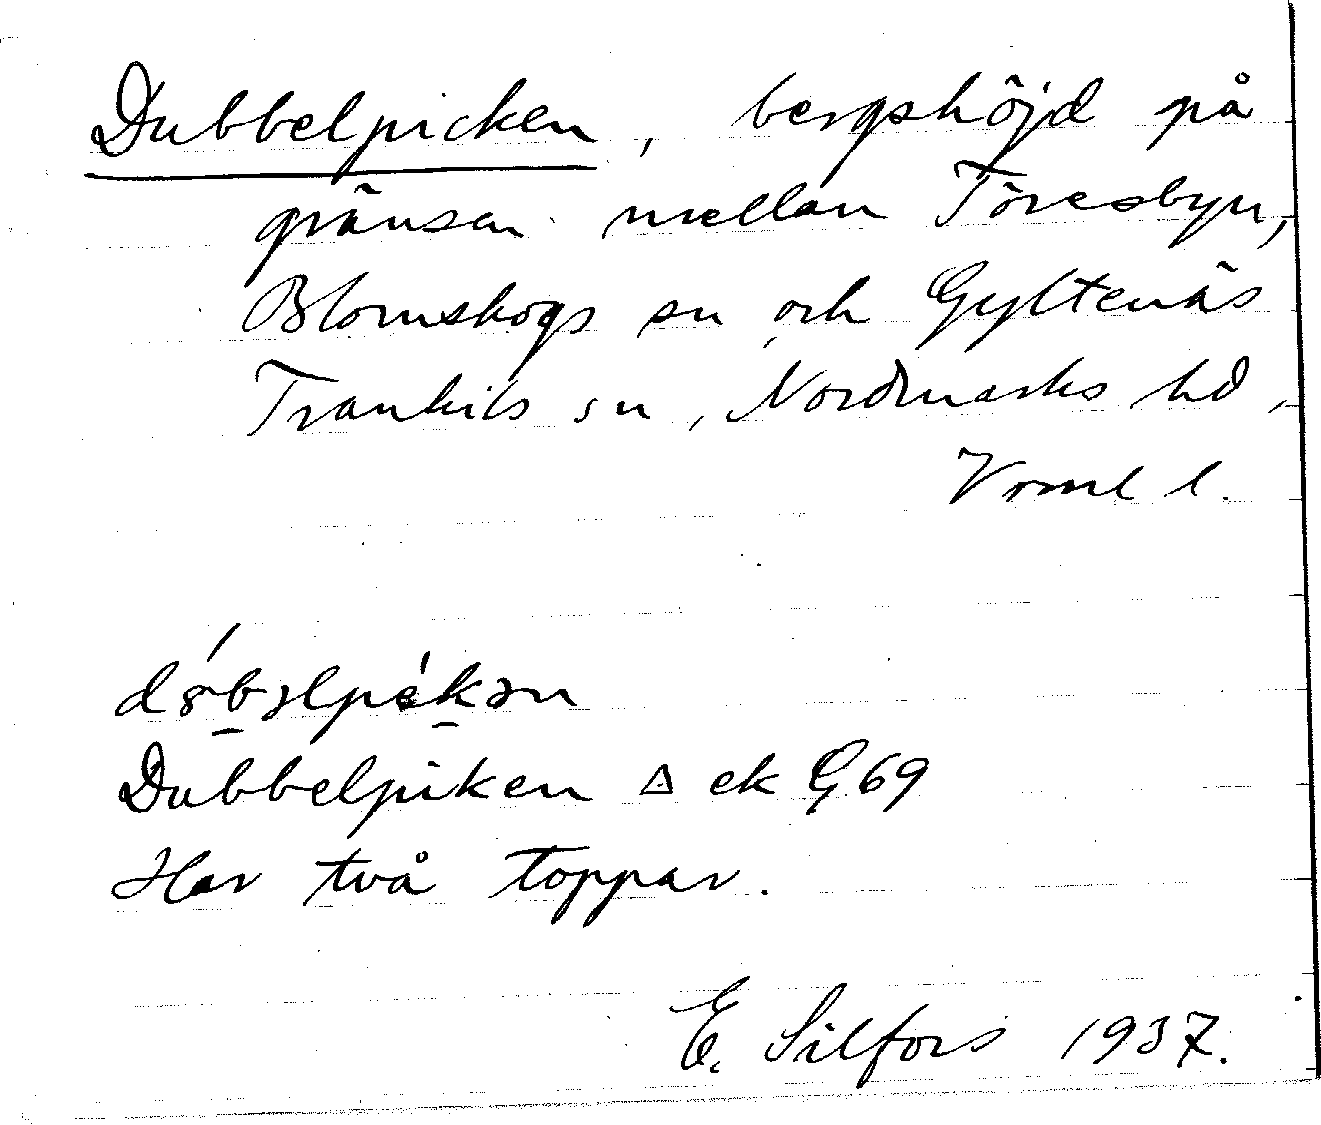 Dubbelpicken, bergshöjd på
gränsen mellan Töresbyn,
Blomskogs sn och Gyltenäs
Trankils sn, Nordmarks hd,
Vrml l.
Dubbelpiken △ ek G 69
Har två toppar.
E. Silfors 1937.